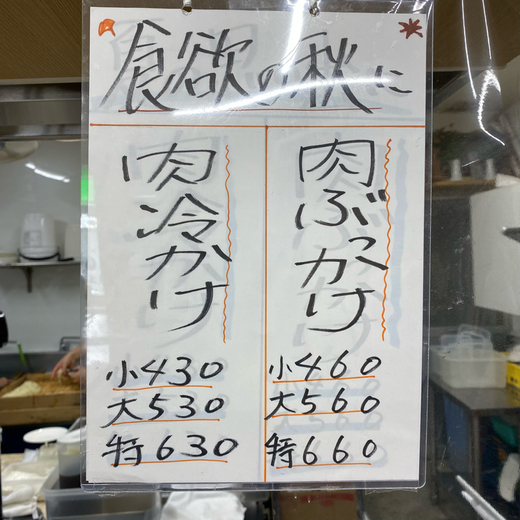 食欲の秋に
肉ぶっかけ
小460
大560
特660
肉冷かけ
小430
大530
特630